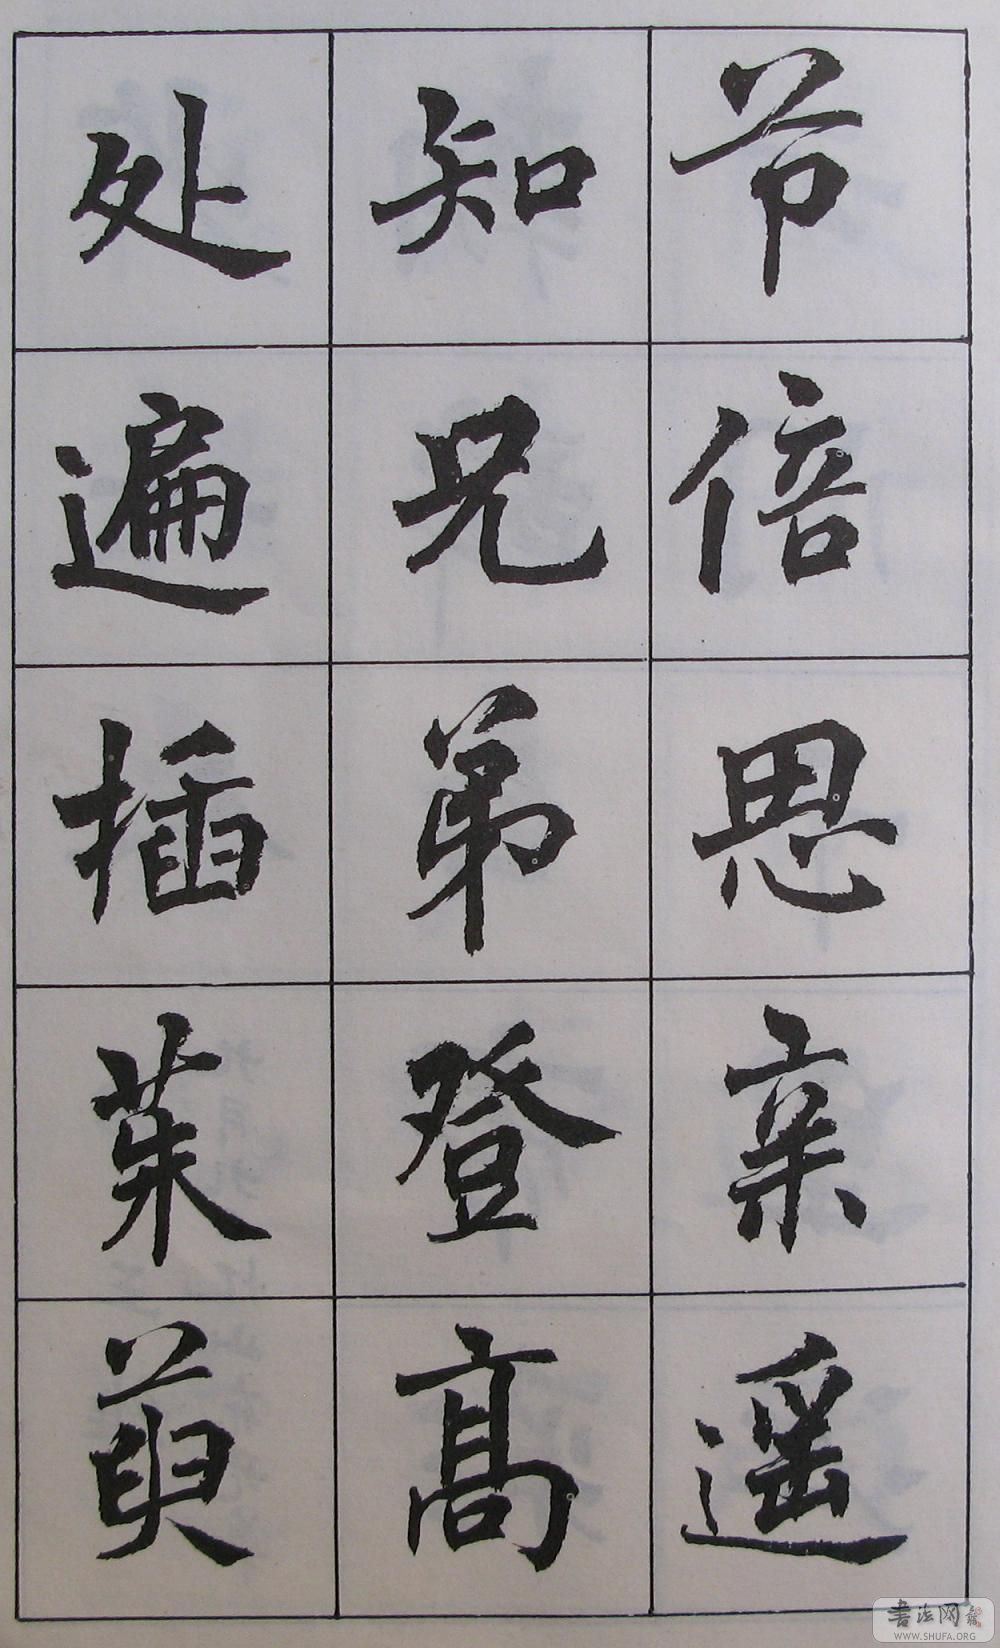 节倍思亲遥
知兄弟登高
处遍插茱萸
书法网
WWW.SHUFA.ORG